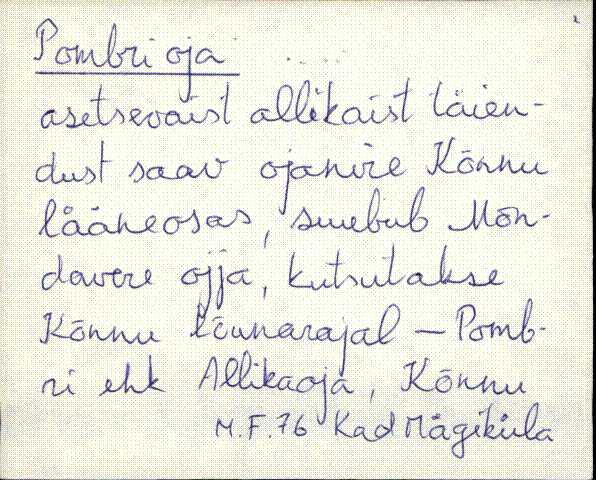 Pombri oja
asetsevaist allikaist täien-
dust saav ojanire Kõnnu
lääneosas, suubub Mõn-
davere ojja, kutsutakse
Kõnnu lõunarajal – Pomb-
ri ehk Allikaoja, Kõnnu
M.F.76 Kad Mägiküla